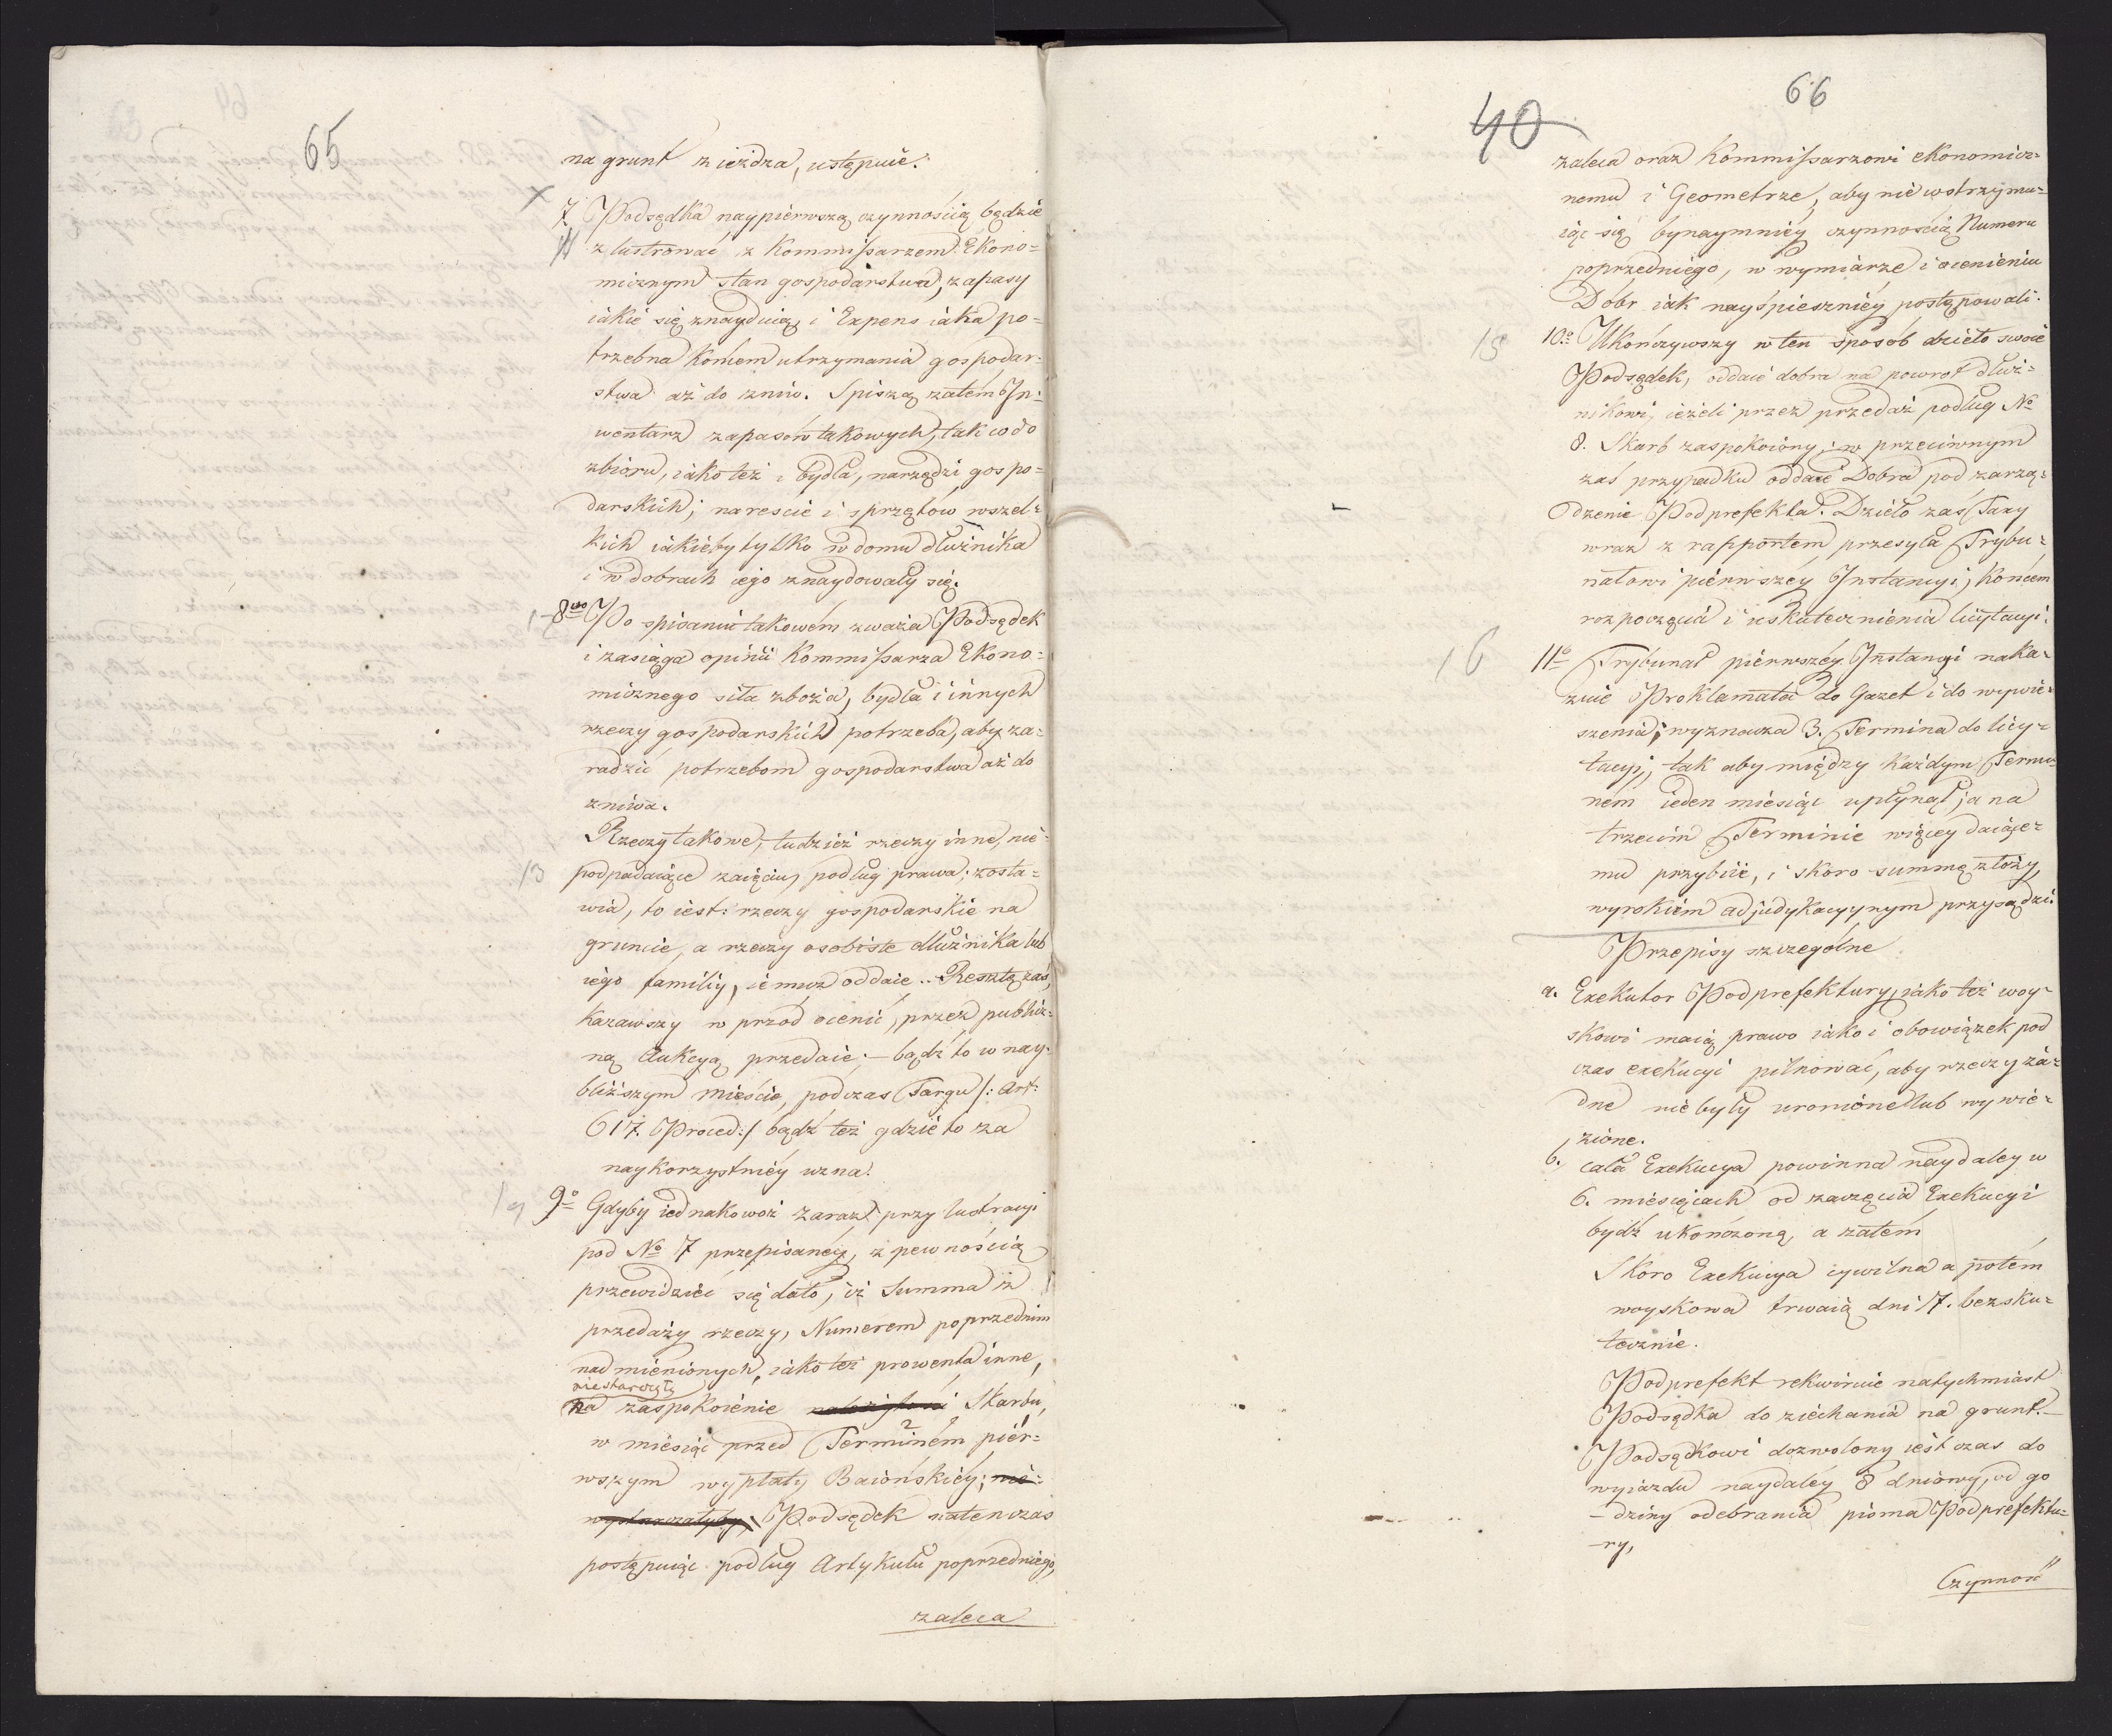 65
na grunt zieżdza, ustępuie.
X
7. Podsędka naypiérwszą czynnością będzie
zlustrować z Kommissarzem Ekono=
micznym stan gospodarstwa, zapasy
iakie się znayduią, i Expens iaka po=
trzebna końcem utrzymania gospodar=
stwa aż do żniw. Spiszą zatém In=
wentarz zapasów takowych, tak co do
zbioru, iako też i bydła, narzędzi gospo=
darskich; nareszcie i sprzętów wszel=
kich iakieby tylko w domu dłużnika
i w dobrach iego znaydowały się.
8vo Po spisaniu takowém zważa Podsędek
i zasiąga opinii Kommissarza Ekono=
micznego siła zboża, bydła i innych
rzeczy gospodarskich potrzeba, aby za=
radzić potrzebom gospodarstwa aż do
żniwa.
Rzeczy takowe, tudzież rzeczy inne, nie=
13 podpadaiące zaięciu podług prawa, zosta=
wia, to iest: rzeczy gospodarskie na
gruncie, a rzeczy osobiste dłużnika lub
iego familiy, iemuż oddaie. Resztę zaś,
kazawszy w przód ocenić, przez publicz=
ną Aukcyą przedaie; – bądź to w nay=
bliższym mieście, podczas Targu /: Art:
617. Proced:/ bądź też gdzie to za
naykorzystniéy uzna.
9o Gdyby iednakowoż zaraz przy lustracyi
pod No 7 przepisanéy, z pewnością
przewidzieć się dało, iż Summa z
przedaży rzeczy, Numerem poprzednim
nadmienionych, iako też prowenta inne,
niestarczą
na zaspokoienie należytości Skarbu,
w miesiąc przed 2 Terminém piér=
wszym wypłaty Baiońskiéy; nie=
wystarczałyby, Podsędek natenczas
postępuiąc podług Artykułu poprzedniego,
zaleca
40
66
zaleca oraz Kommissarzowi ekonomicz=
nemu i Geometrze, aby nie wstrzymu=
iąc się bynaymniéy czynnością Numeru
poprzedniego, w wymiarze i ocenieniu
Dóbr iak nayśpieszniéy postępowali.
15 10o Ukończywszy w ten sposób dzieło swoie
Podsędek, oddaie dobra na powrót dłuż=
nikowi, ieżeli przez przedaż podług No
8. Skarb zaspokoiony; w przeciwnym
zaś przypadku oddaie Dobra pod zarzą=
dzenie Podprefekta. Dzieło zaś Taxy
wraz z rapportem przesyła Trybu=
nałowi piérwszéy Instancyi, końcem
rozpoczęcia i uskutecznienia licytacyi.
16 11o Trybunał piérwszéy Instancyi naka=
zuie Proklamata do Gazet i do wywie=
szenia; wyznacza 3. Termina do licy=
tacyi, tak aby między każdym Termi=
ném ieden miesiąc upłynął; a na
trzecim Terminie więcey daiące=
mu przybiie, i skoro summę złoży,
wyrokiém adjudykacyynym przysądzi.
Przepisy szczególne
a. Exekutor Podprefektury, iako też woy=
skowi maią prawo iako i obowiązek pod
czas exekucyi pilnować, aby rzeczy ża=
dne nie były uronione lub wywie=
zione.
b. cała Exekucya powinna naydaley w
6. miesięciach od zaczęcia Exekucyi
bydź ukończoną, a zatém
Skoro Exekucya cywilna a potém
woyskowa trwaią dni 7. bezsku=
tecznie.
Podprefekt rekwiruie natychmiast
Podsędka do ziechania na grunt. –
Podsędkowi dozwolony iest czas do
wyiazdu naydaléy 8 dniowy, od go
– dziny odebrania pisma Podprefektu=
– ry,
Czynność